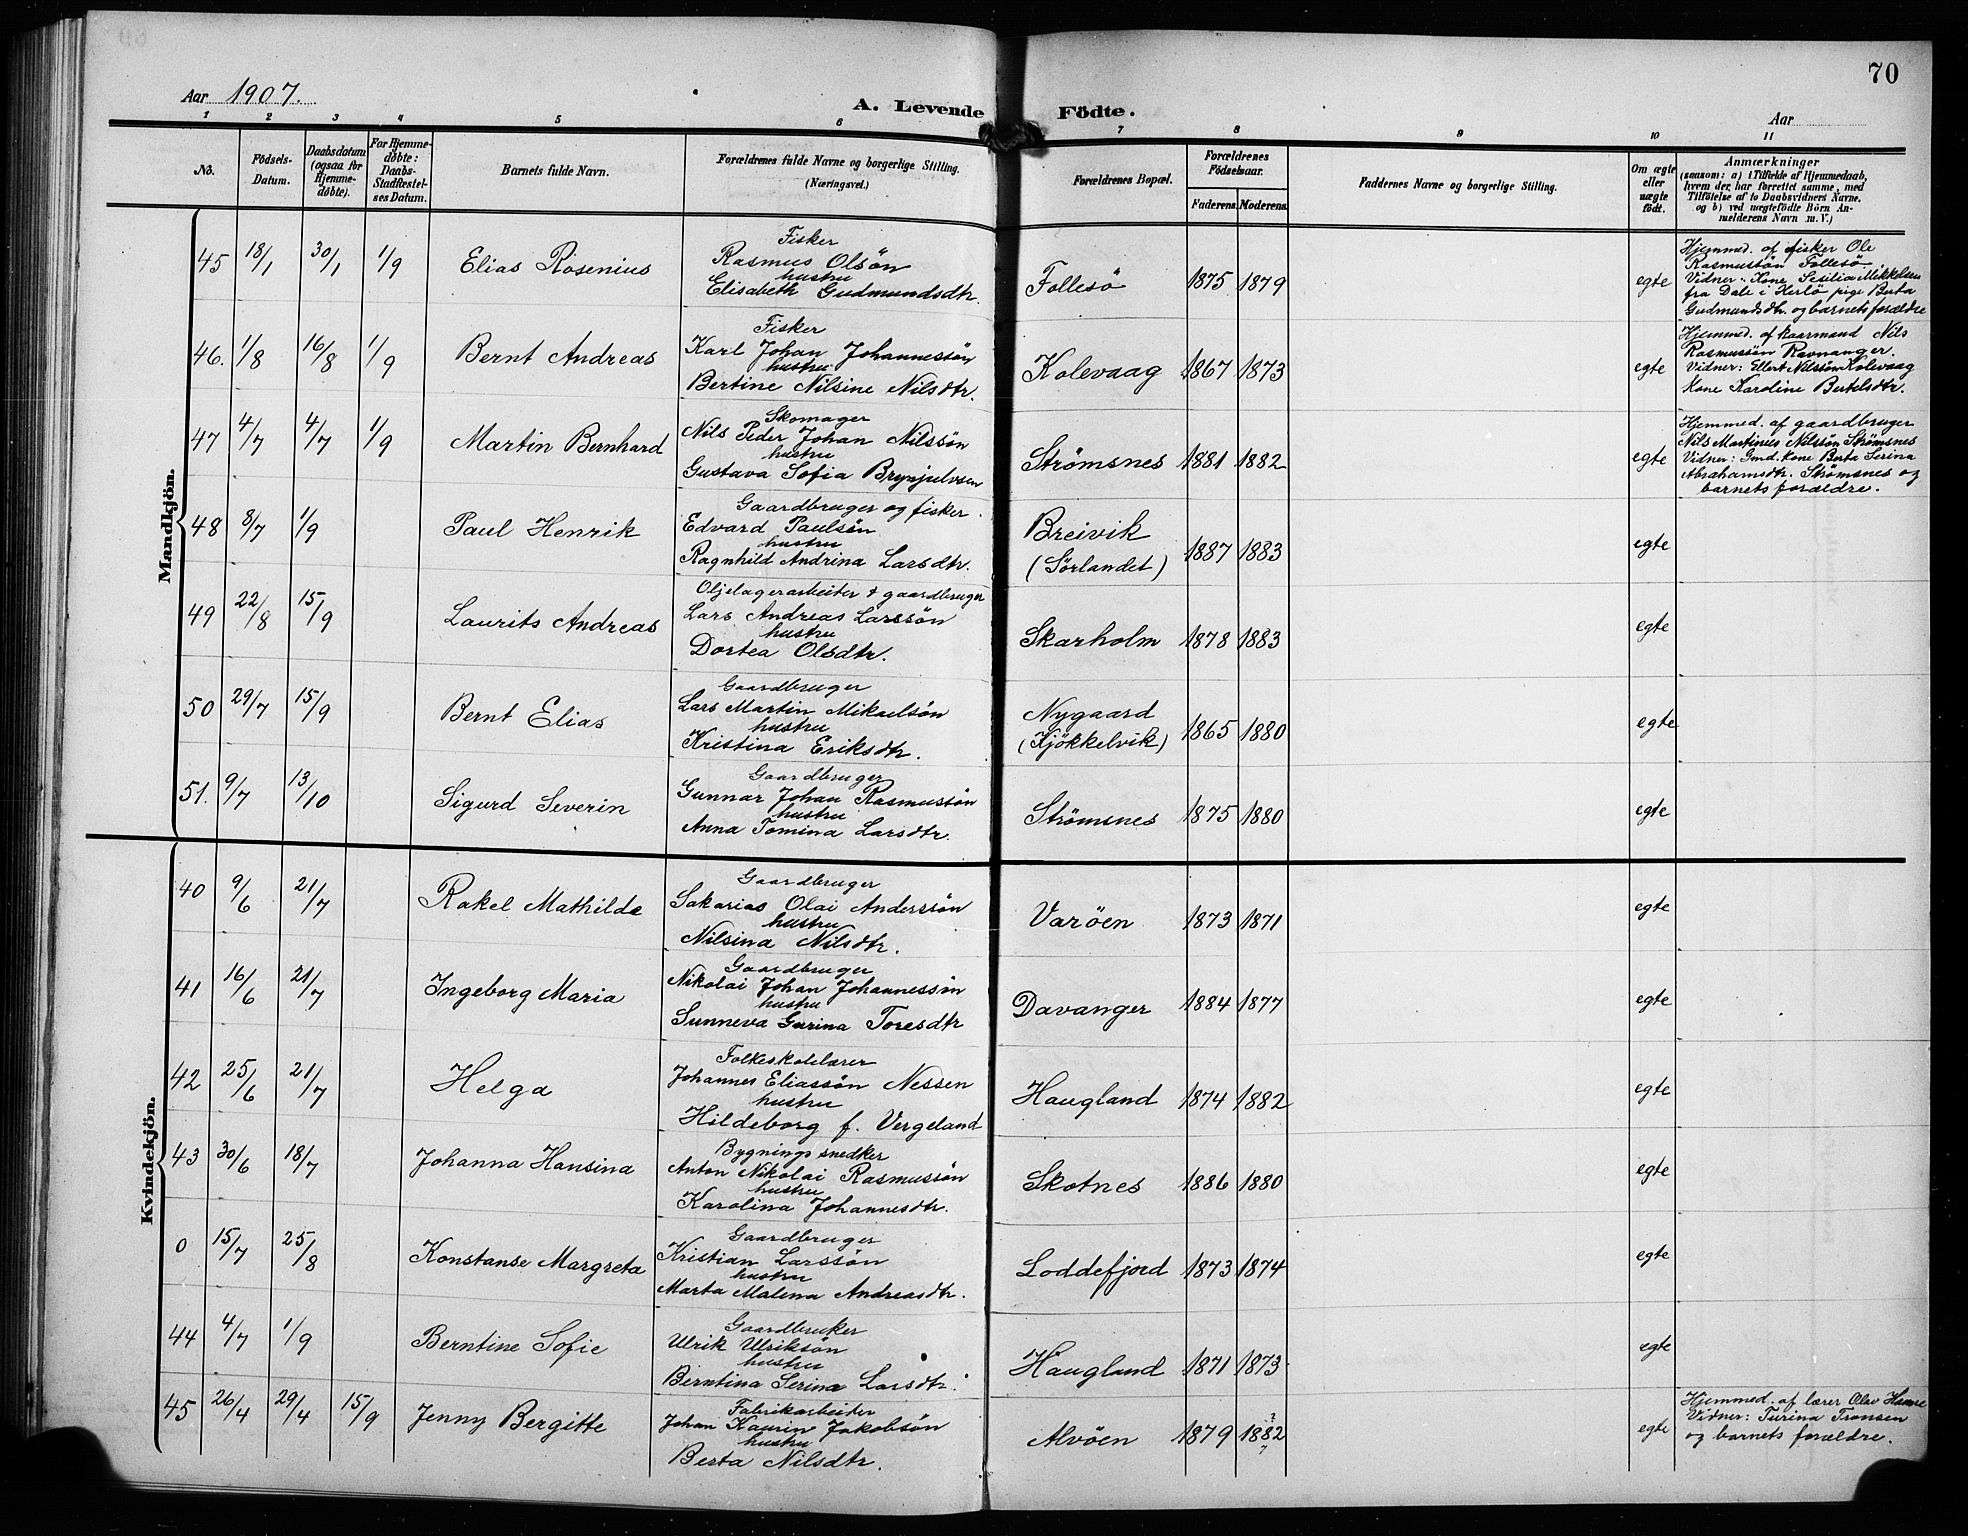 70
Aar 1907.
A. Levende Födte.
Aar
1 2 3 4 5 6 7 8 9 10 11
No.
Födsels-Datum.
Daabsdatum (ogsaa for Hjemmedöbte).
For Hjemmedöbte: Daabs-Stadfæstelses Datum.
Barnets fulde Navn.
Forældrenes fulde Navne og borgerlige Stilling.
(Næringsvei.)
Forældrenes Bopæl.
Forældrenes Födselsaar.
Faderens. Moderens.
Faddernes Navne og borgerlige Stilling.
Om ægte eller uægte födt.
Anmærkninger
(saasom: a) i Tilfælde af Hjemmedaab, hvem der har forrettet samme, med Tilföielse af to Daabsvidners Navne, og b) ved uægtefödte Börn Anmelderens Navn m. V.)
Mandkjön.
45 18/1 30/1 1/9 Elias Rosenius
Fisker
Rasmus Olsön
hustru
Elisabeth Gudmundsdtr.
Follesö 1875 1879 egte
Hjemmed. af fisker Ole
Rasmussön Follesö.
Vidner: Kone Sesilia Mikkelsen
fra Dale i Herlö pige Berta
Gudmundsdtr. og barnets forældre
46. 1/8 16/8 1/9 Bernt Andreas
Fisker
Karl Johan Johannessön
hustru
Bertine Nilsine Nilsdtr.
Kolevaag 1867 1873 egte
Hjemmed. af kaarmand Nils
Rasmussön Ravnanger.
Vidner: Ellert Nilsön Kolevaag
Kone Karoline Bertelsdtr.
47 4/7 4/7 1/9 Martin Bernhard
Skomager
Nils Peder Johan Nilssön
hustru
Gustava Sofia Brynjulvsen
Strømsnes 1881 1882 egte
Hjemmed. af gaardbruger
Nils Martinus Nilssön Strømsnes
Vidner: Gmd. kone Berta Serina
Abrahamsdtr. Strømsnes og
barnets forældre.
48 8/7 1/9 Paul Henrik
Gaardbruger og fisker.
Edvard Paulsön
hustru
Ragnhild Andrina Larsdtr.
Breivik
(Sörlandet)
1887 1883 egte
49 22/8 15/9 Laurits Andreas
Oljelagerarbeiter + gaardbruger
Lars Andreas Larssön
hustru
Dortea Olsdtr.
Skarholm 1878 1883 egte
50 29/7 15/9 Bernt Elias
Gaardbruger
Lars Martin Mikaelsön
hustru
Kristina Eriksdtr.
Nygaard
(Kjökkelvik)
1865 1880 egte
51. 9/7 13/10 Sigurd Severin
Gaardbruger
Gunnar Johan Rasmussön
hustru
Anna Tomina Larsdtr.
Strømsnes 1875 1880 egte
Kvindekjön.
40 9/6 21/7 Rakel Mathilde
Gaardbruger
Sakarias Olai Anderssön
hustru
Nilsina Nilsdtr.
Varöen 1873 1871 egte
41 16/6 21/7 Ingeborg Maria
Gaardbruger
Nikolai Johan Johannessön
hustru
Sunneva Gurina Toresdtr
Davanger 1884 1877 egte
42 25/6 21/7 Helga
Folkeskolelærer
Johannes Eliassön Nessen
hustru
Hildeborg f. Vergeland
Haugland 1874 1882 egte
43 30/6 18/7 Johanna Hansina
Bygnings snedker
Anton Nikolai Rasmussön
hustru
Karolina Johannesdtr.
Skotnes 1886 1880 egte
0 15/7 25/8 Konstanse Margreta
Gaardbruger
Kristian Larssön
hustru
Marta Malena Andreasdtr.
Loddefjord 1873 1874 egte
44 4/7 1/9 Berntine Sofie
Gaardbruker
Ulrik Ulriksön
hustru
Berntina Serina Larsdtr.
Haugland 1871 1873 egte
45 26/4 29/4 15/9 Jenny Bergitte
Fabrikarbeider
Johan Kaurin Jakobsön
hustru
Berta Nilsdtr.
Alvöen 1879 1882 ? egte
Hjemmed. af lærer Olav Hamre
Vidner: Turina Tronsen
og barnets forældre.